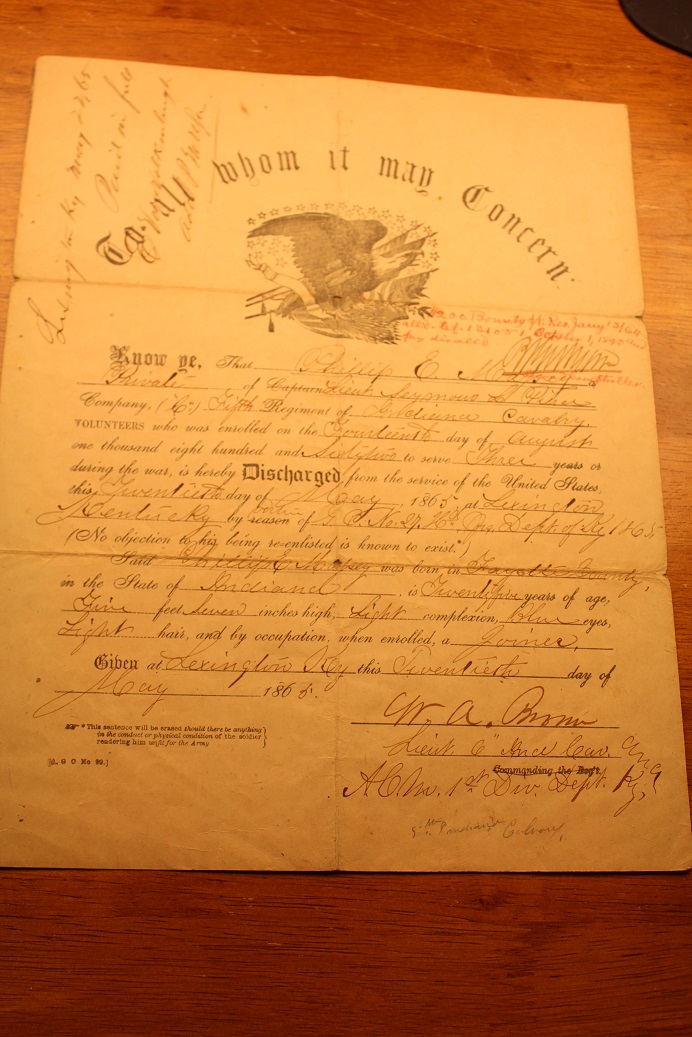 Lexington Ky May 22, 65
Paid in full
To all whom it may Concern.
$200 Bounty
Know ye, That Phillip E
Private of Captain Lieut Seymour
Company, (C.) Fifth Regiment of Indiana Cavalry,
VOLUNTEERS who was enrolled on the Fourteenth day of August
one thousand eight hundred and Sixty two to serve Three years or
during the war, is hereby Discharged from the service of the United States,
this Twentieth day of May 1865 at Lexington
Kentucky by reason of G. O. No. Dept. of Ky 1865
(No objection to his being re-enlisted is known to exist.*)
Said Phillip E was born in Fayette County,
in the State of Indiana, is Twenty five years of age,
Five feet Seven inches high, Light complexion, Blue eyes,
Light hair, and by occupation, when enrolled, a Joiner.
Given at Lexington Ky this Twentieth day of
May 1865.
W. A. Brown
Lieut Cav.
* This sentence will be erased should there be anything
in the conduct or physical condition of the soldier
rendering him unfit for the Army
[A. G O No 99.]
Commanding the Reg't.
A. C. M. 1st Div. Dept. Ky,